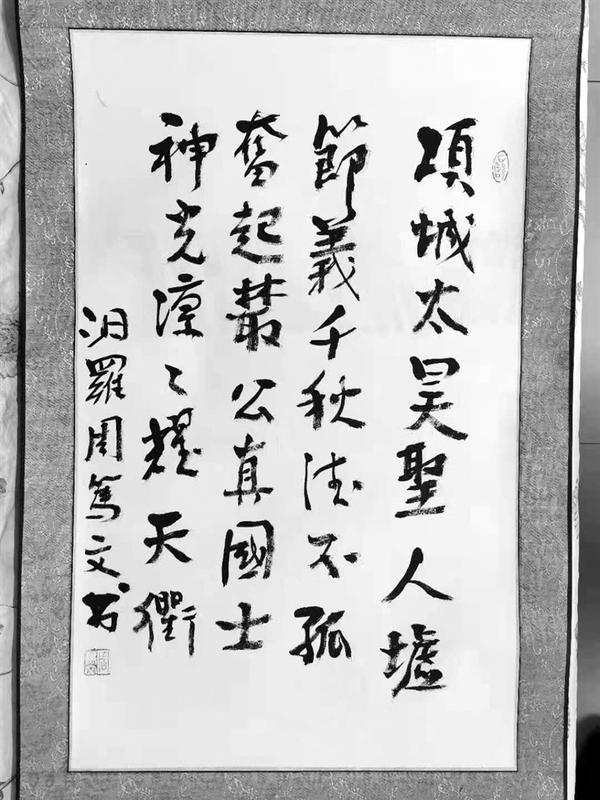 项城太昊聖人墟
節義千秋德不孤
奮起叢公真國士
神光凛々耀天衢
汨羅周篤文书